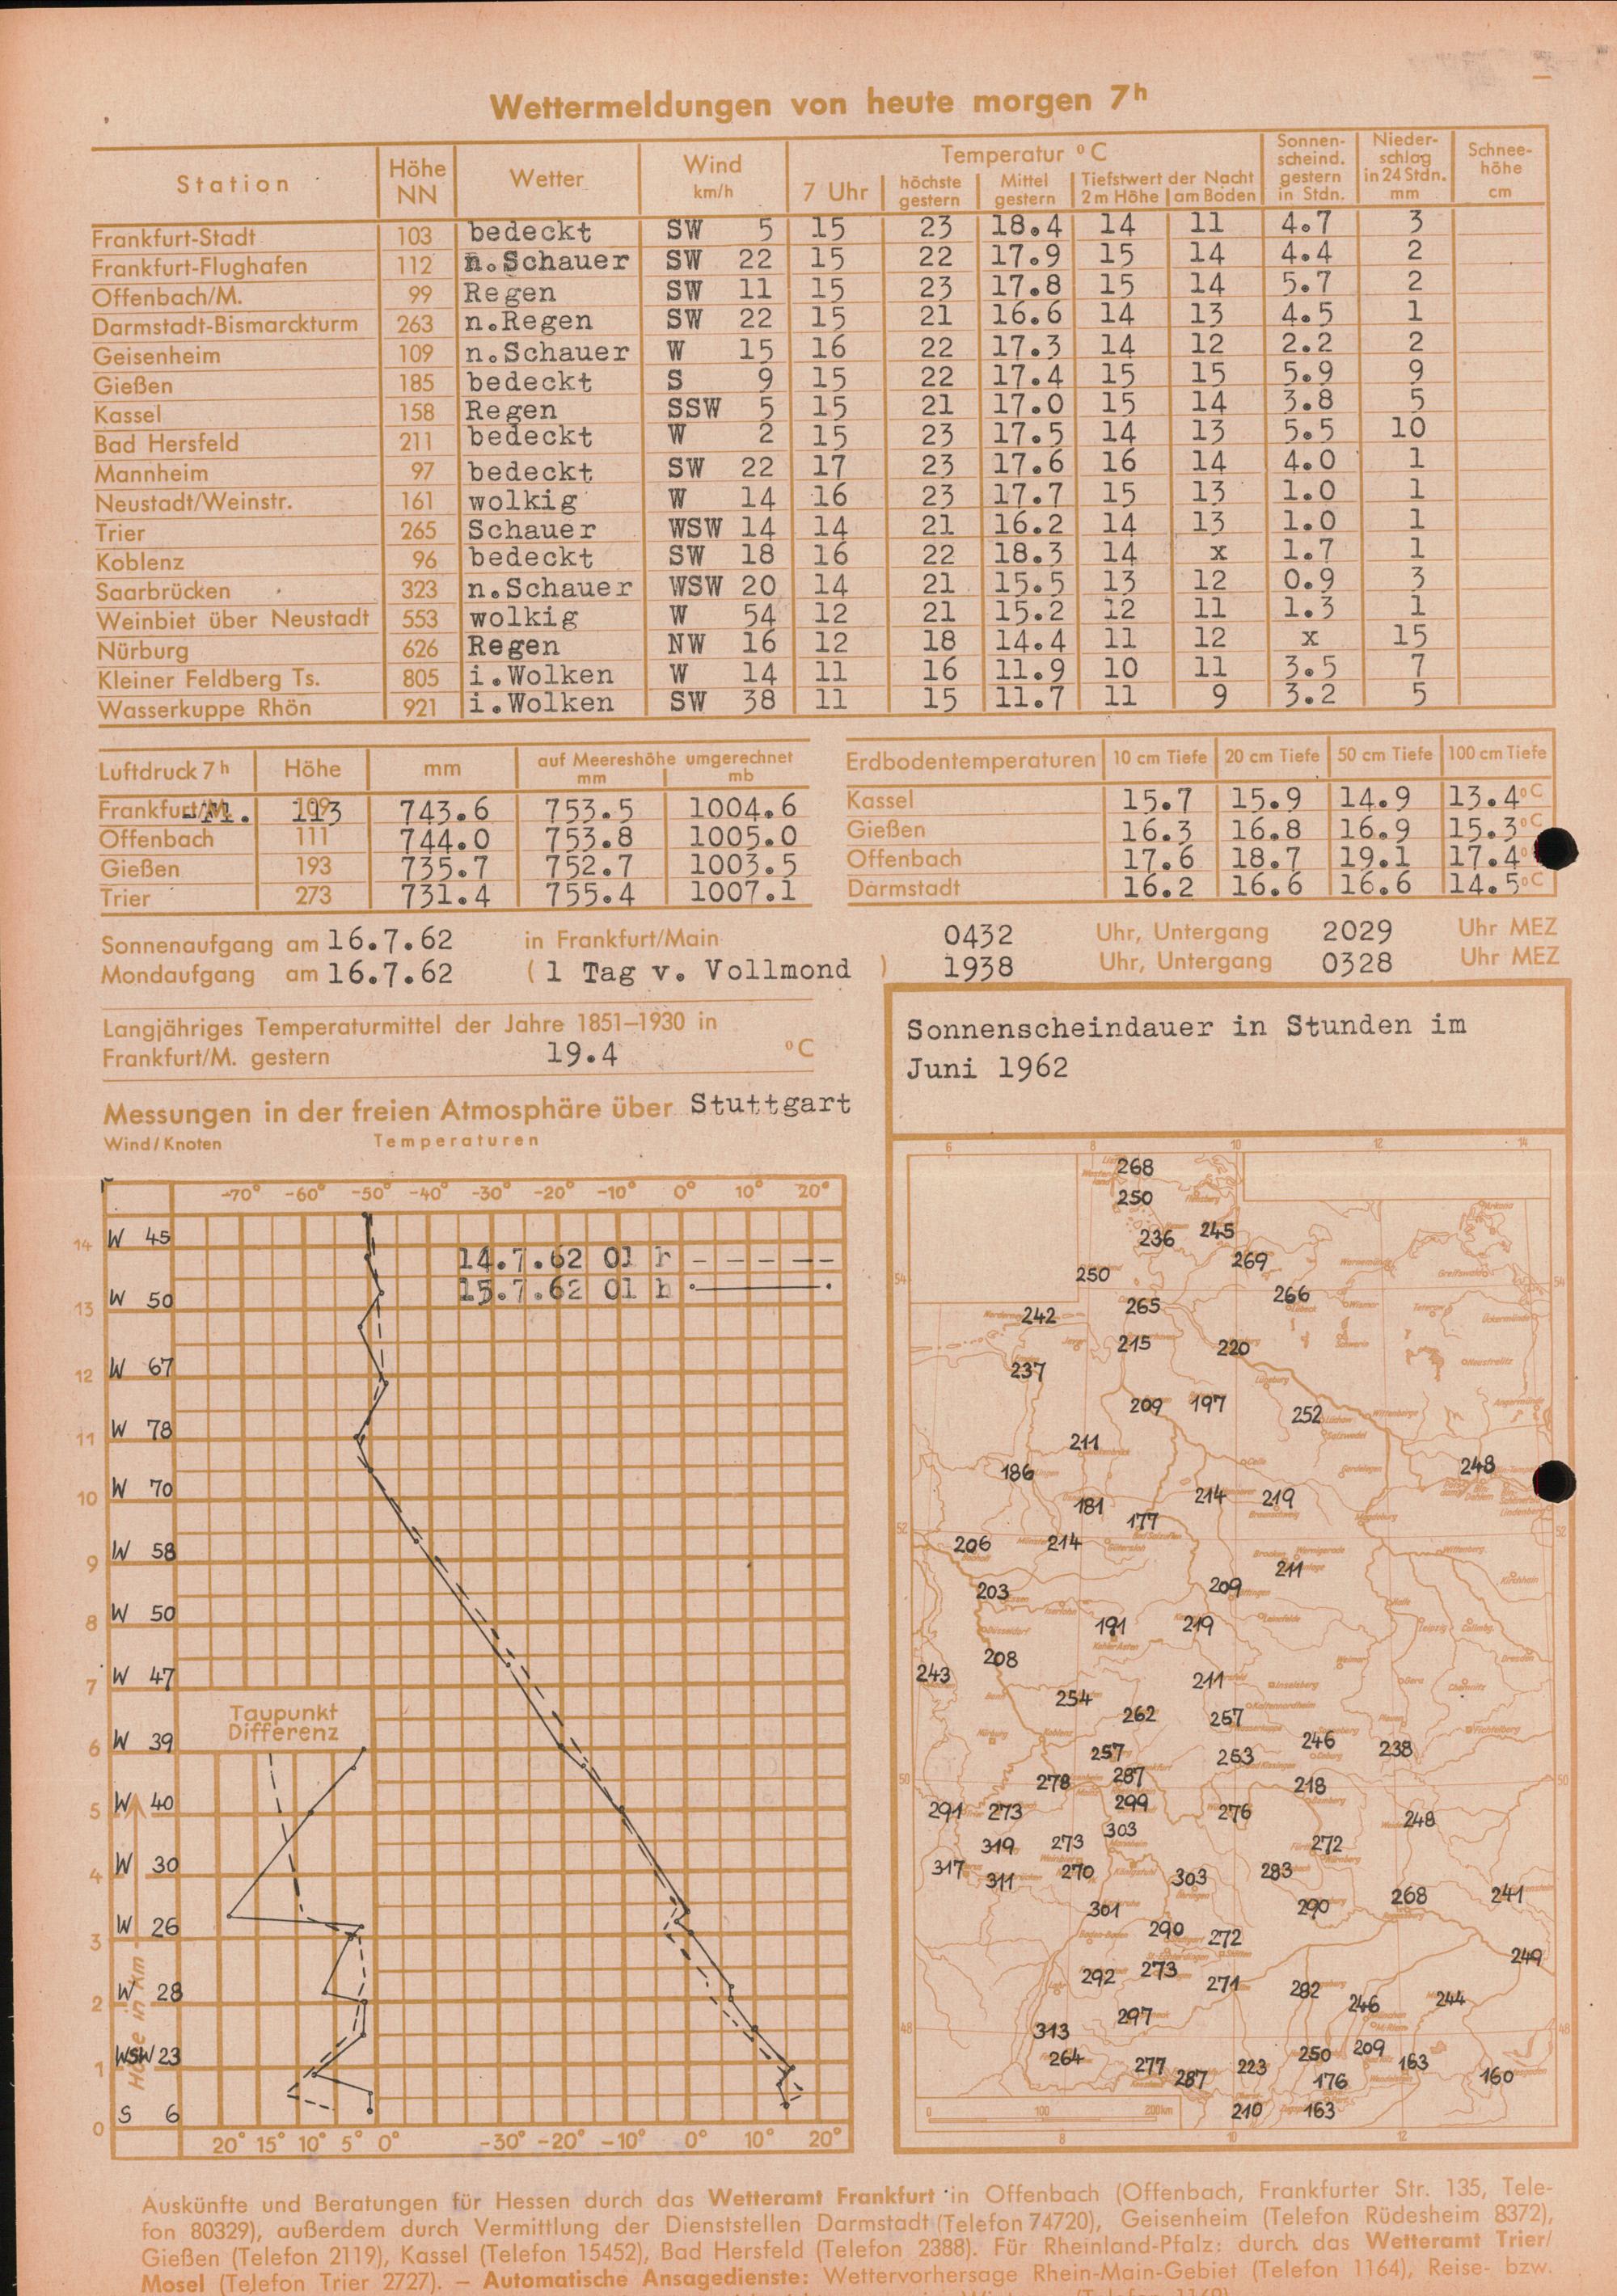 Wettermeldungen von heute morgen 7h
Station Höhe NN Wetter Wind km/h Temperatur °C Sonnen-scheind. gestern in Stdn. Nieder-schlag in 24 Stdn. mm Schnee-höhe cm
7 Uhr höchste gestern Mittel gestern Tiefstwert der Nacht 2 m Höhe am Boden
Frankfurt-Stadt 103 bedeckt SW 5 15 23 18.4 14 11 4.7 3
Frankfurt-Flughafen 112 n.Schauer SW 22 15 22 17.9 15 14 4.4 2
Offenbach/M. 99 Regen SW 11 15 23 17.8 15 14 5.7 2
Darmstadt-Bismarckturm 263 n.Regen SW 22 15 21 16.6 14 13 4.5 1
Geisenheim 109 n.Schauer W 15 16 22 17.3 14 12 2.2 2
Gießen 185 bedeckt S 9 15 22 17.4 15 15 5.9 9
Kassel 158 Regen SSW 5 15 21 17.0 15 14 3.8 5
Bad Hersfeld 211 bedeckt W 2 15 23 17.5 14 13 5.5 10
Mannheim 97 bedeckt SW 22 17 23 17.6 16 14 4.0 1
Neustadt/Weinstr. 161 wolkig W 14 16 23 17.7 15 13 1.0 1
Trier 265 Schauer WSW 14 14 21 16.2 14 13 1.0 1
Koblenz 96 bedeckt SW 18 16 22 18.3 14 x 1.7 1
Saarbrücken 323 n.Schauer WSW 20 14 21 15.5 13 12 0.9 3
Weinbiet über Neustadt 553 wolkig W 54 12 21 15.2 12 11 1.3 1
Nürburg 626 Regen NW 16 12 18 14.4 11 12 x 15
Kleiner Feldberg Ts. 805 i.Wolken W 14 11 16 11.9 10 11 3.5 7
Wasserkuppe Rhön 921 i.Wolken SW 38 11 15 11.7 11 9 3.2 5
Luftdruck 7h Höhe mm auf Meereshöhe umgerechnet mm mb
Frankfurt/M. 113 743.6 753.5 1004.6
Offenbach 111 744.0 753.8 1005.0
Gießen 193 735.7 752.7 1003.5
Trier 273 731.4 755.4 1007.1
Erdbodentemperaturen 10 cm Tiefe 20 cm Tiefe 50 cm Tiefe 100 cm Tiefe
Kassel 15.7 15.9 14.9 13.4°C
Gießen 16.3 16.8 16.9 15.3°C
Offenbach 17.6 18.7 19.1 17.4°
Darmstadt 16.2 16.6 16.6 14.5°C
Sonnenaufgang am 16.7.62 in Frankfurt/Main 0432 Uhr, Untergang 2029 Uhr MEZ
Mondaufgang am 16.7.62 (1 Tag v. Vollmond) 1938 Uhr, Untergang 0328 Uhr MEZ
Langjähriges Temperaturmittel der Jahre 1851–1930 in
Frankfurt/M. gestern 19.4 °C
Messungen in der freien Atmosphäre über Stuttgart
Wind/Knoten Temperaturen
-70° -60° -50° -40° -30° -20° -10° 0° 10° 20°
14 W 45
14.7.62 01 h
15.7.62 01 h
13 W 50
12 W 67
11 W 78
10 W 70
9 W 58
8 W 50
7 W 47
Taupunkt
Differenz
6 W 39
5 W 40
4 W 30
3 W 26
2 W 28
1 WSW 23
0 S 6
Höhe in km
20° 15° 10° 5° 0° -30° -20° -10° 0° 10° 20°
Sonnenscheindauer in Stunden im
Juni 1962
6 8 10 12 14
268
250
236 245
269
250
54 54
266
242 265
215 220
237
209 197
252
211
186 248
181 214 219
177
52 52
206 214
211
203 209
191 219
208
243 211
254
262 257
246
257 253 238
278 287 218
50 50
291 273 299 276
248
303
319 273 272
317 311 270 303 283
301 290 268 241
290 272
249
292 273 271 282
246 244
297
48 48
313
264 277 287 223 250 209 163
176 160
210 163
0 100 200km
8 10 12
Auskünfte und Beratungen für Hessen durch das Wetteramt Frankfurt in Offenbach (Offenbach, Frankfurter Str. 135, Tele-
fon 80329), außerdem durch Vermittlung der Dienststellen Darmstadt (Telefon 74720), Geisenheim (Telefon Rüdesheim 8372),
Gießen (Telefon 2119), Kassel (Telefon 15452), Bad Hersfeld (Telefon 2388). Für Rheinland-Pfalz: durch das Wetteramt Trier/
Mosel (Telefon Trier 2727). — Automatische Ansagedienste: Wettervorhersage Rhein-Main-Gebiet (Telefon 1164), Reise- bzw.